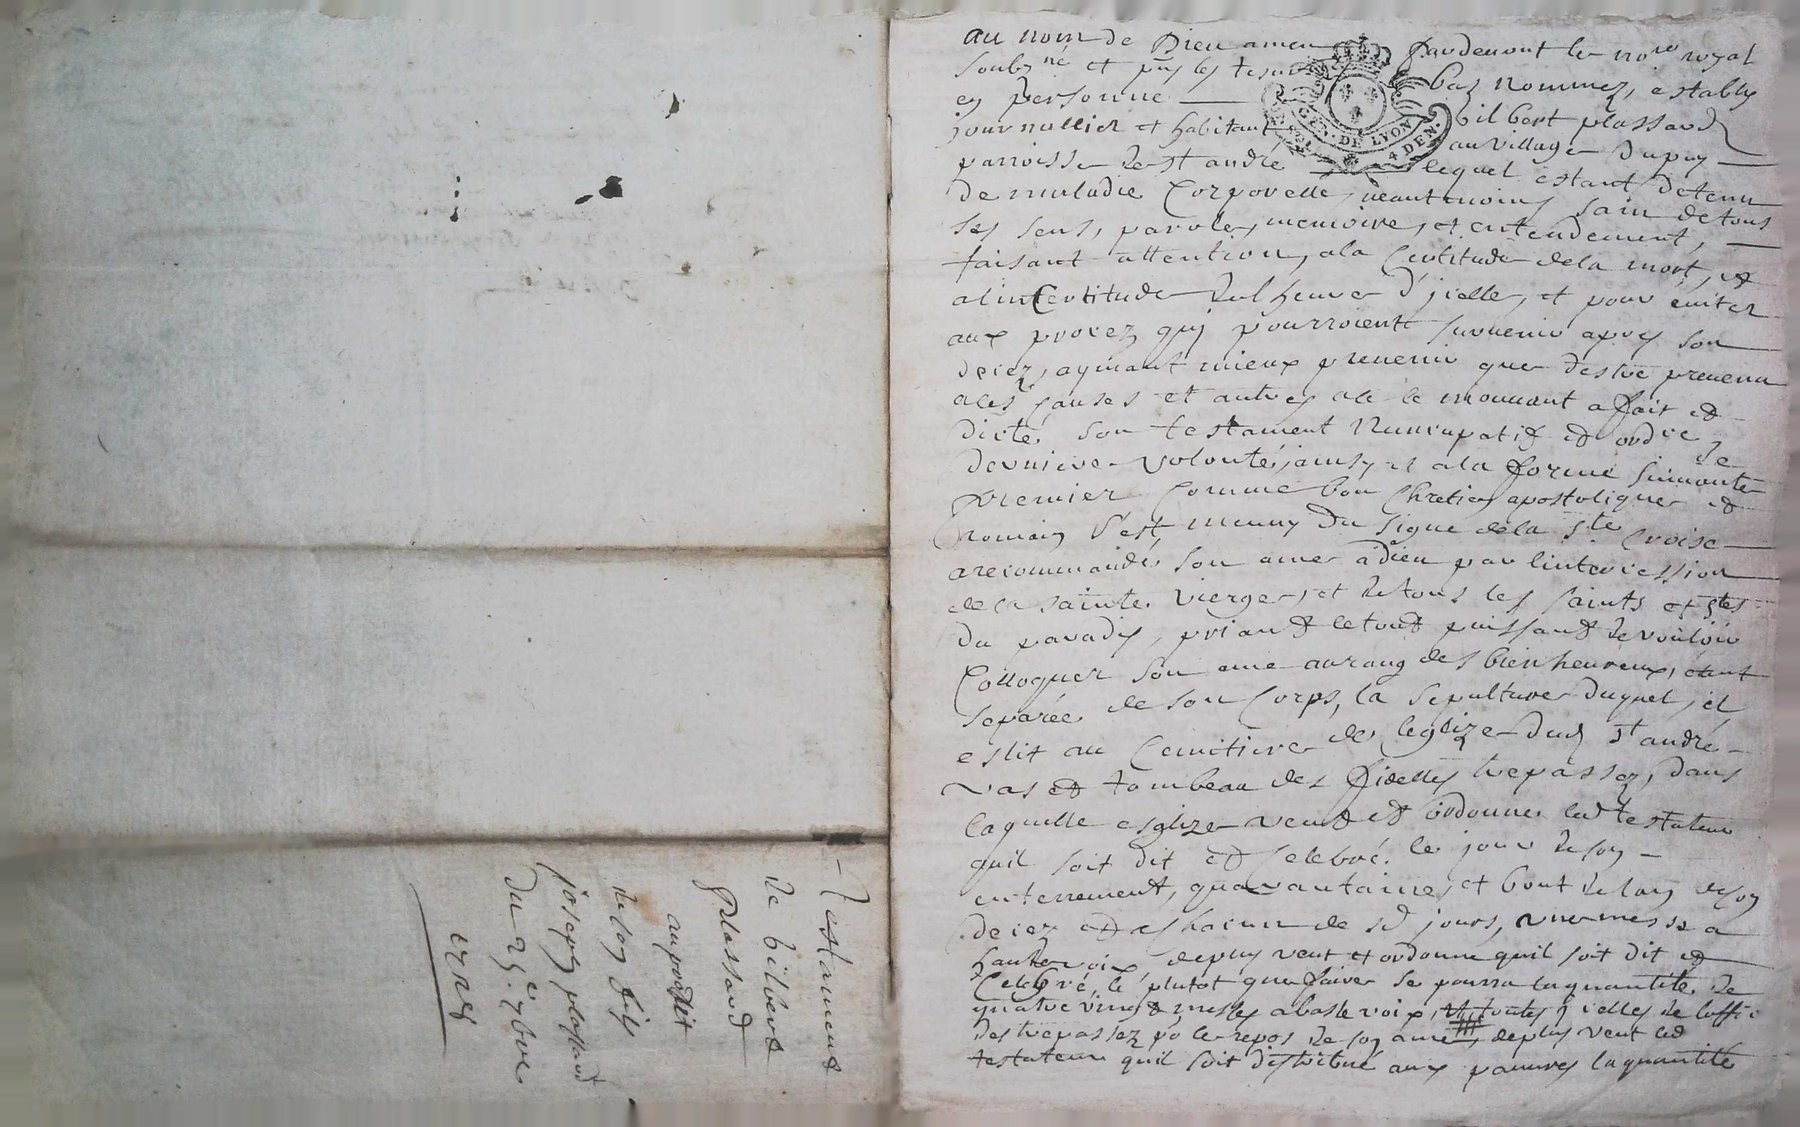 Testament
de Gilbert
Plassard
au proffit
de son fils
joseph plassard
du 25e 9bre
au nom de Dieu amen pardevant le nore royal
soubzné et puis les tesmoins bas nommez, estably
en personne Gilbert plassard
journallier et habitant au village Dupuy
parroisse de st andré lequel estant detenu
de maladie Corporelle, neantmoins sain de tous
ses sens, parole, memoire, et entendement,
faisant attention, a la Certitude de la mort, et
a lincertitude de l heure d'jcelle, et pour éuiter
aux procez quj pourroient suruenir apres son
decez, aymant mieux preuenir que destre preuenu
a ces Causes et autres a ce le mouuant a fait et
dicté son testament Nuncupatif et ordre de
derniere volonté, ainsy et a la forme suiuante
Premier Comme bon Chretien apostolique et
Romain s'est, muny Du signe de la ste Croise
a recommandé son ame a Dieu par lintercession
de la sainte Vierge, et de tous les saints et stes
du paradis, priant le tout puissant de vouloir
Colloquer son ame au rang des bienheureux, étant
separée de son Corps, la sepulture duquel, il
eslit au Cemitiere de leglize dud st andré
vas et tombeau des fidelles trepassez, dans
laquelle esglize veut et ordonne led testateur
quil soit dit et Celebré le jour de son
enterrement, quarantaine, et bout de lan de son
decez et a chacun de sd jours, vne messe a
haute voix deplus veut et ordonne quil soit dit et
Celebré, le plutot que faire se pourra la quantité de
quatre vingt messes a basse voix, et toutes jcelles de loffice
des trepassez po le repos de son ame, deplus veut led
testateur quil soit distribué aux pauures la quantité
GEN. DE LYON
4 DEN.